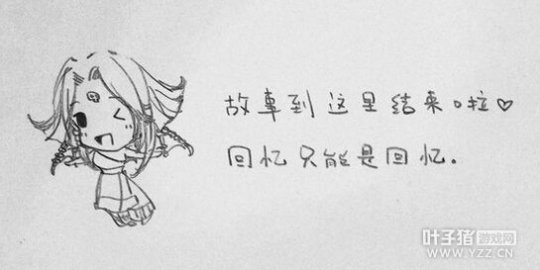 故事到这里结束啦♡
回忆只能是回忆.
叶子猪游戏网
WWW.YZZ.CN